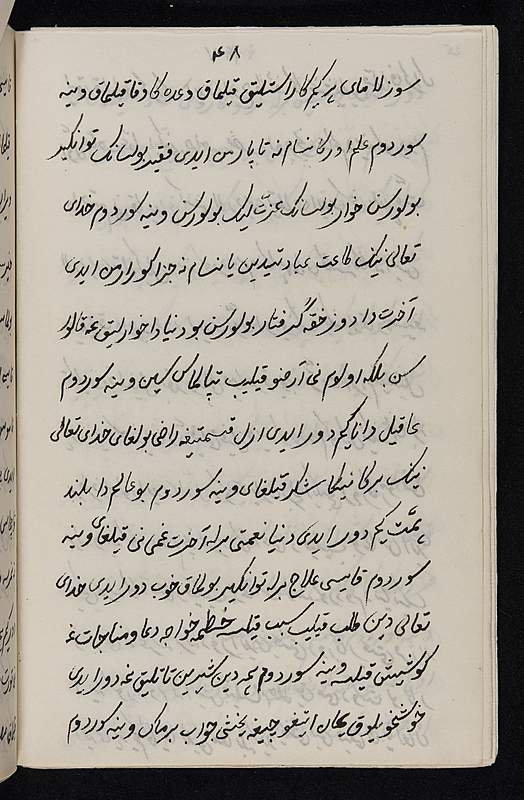 ۴۸
سوزلامای هر کیم کا راستلیق قیلماق وعده کا وفا قیلماق وینه
سوردوم علم اورکانسام نه تاپارمن ایدی فقیر بولسانک توانکیر
بولورسن خوار بولسانک عزت لیک بولورسن وینه سوردوم خدای
تعالی نینک طاعت عبادتیدین یانسام نه جزا کورارمن ایدی
آخرت دا دوزخقه گرفتار بولورسن بو دنیادا خوارلیق غه قالور
سن بلکه اولوم نی آرضو قیلیب تپالماس سین وینه سوردوم
عاقیل دانا کیم دور ایدی ازل قیسمتیغه راضی بولغای خدای تعالی
نینک برکانیکا شکر قیلغای وینه سوردوم بو عالم دا بلند
همّت کیم دور ایدی دنیا نعمتی برله آخرت غمی نی قیلغای وینه
سوردوم قایسی علاج برله توانکیر بولماق خوب دور ایدی خدای
تعالی دین طلب قیلیب سبب قیلسه خواجه دعا و مناجات غه
کوشیش قیلسه وینه سوردوم همه دین شیرین تاتلیق غه دور ایدی
خوشخویلوق یمان ایتغوچیغه یخشی جواب برماک وینه سوردوم